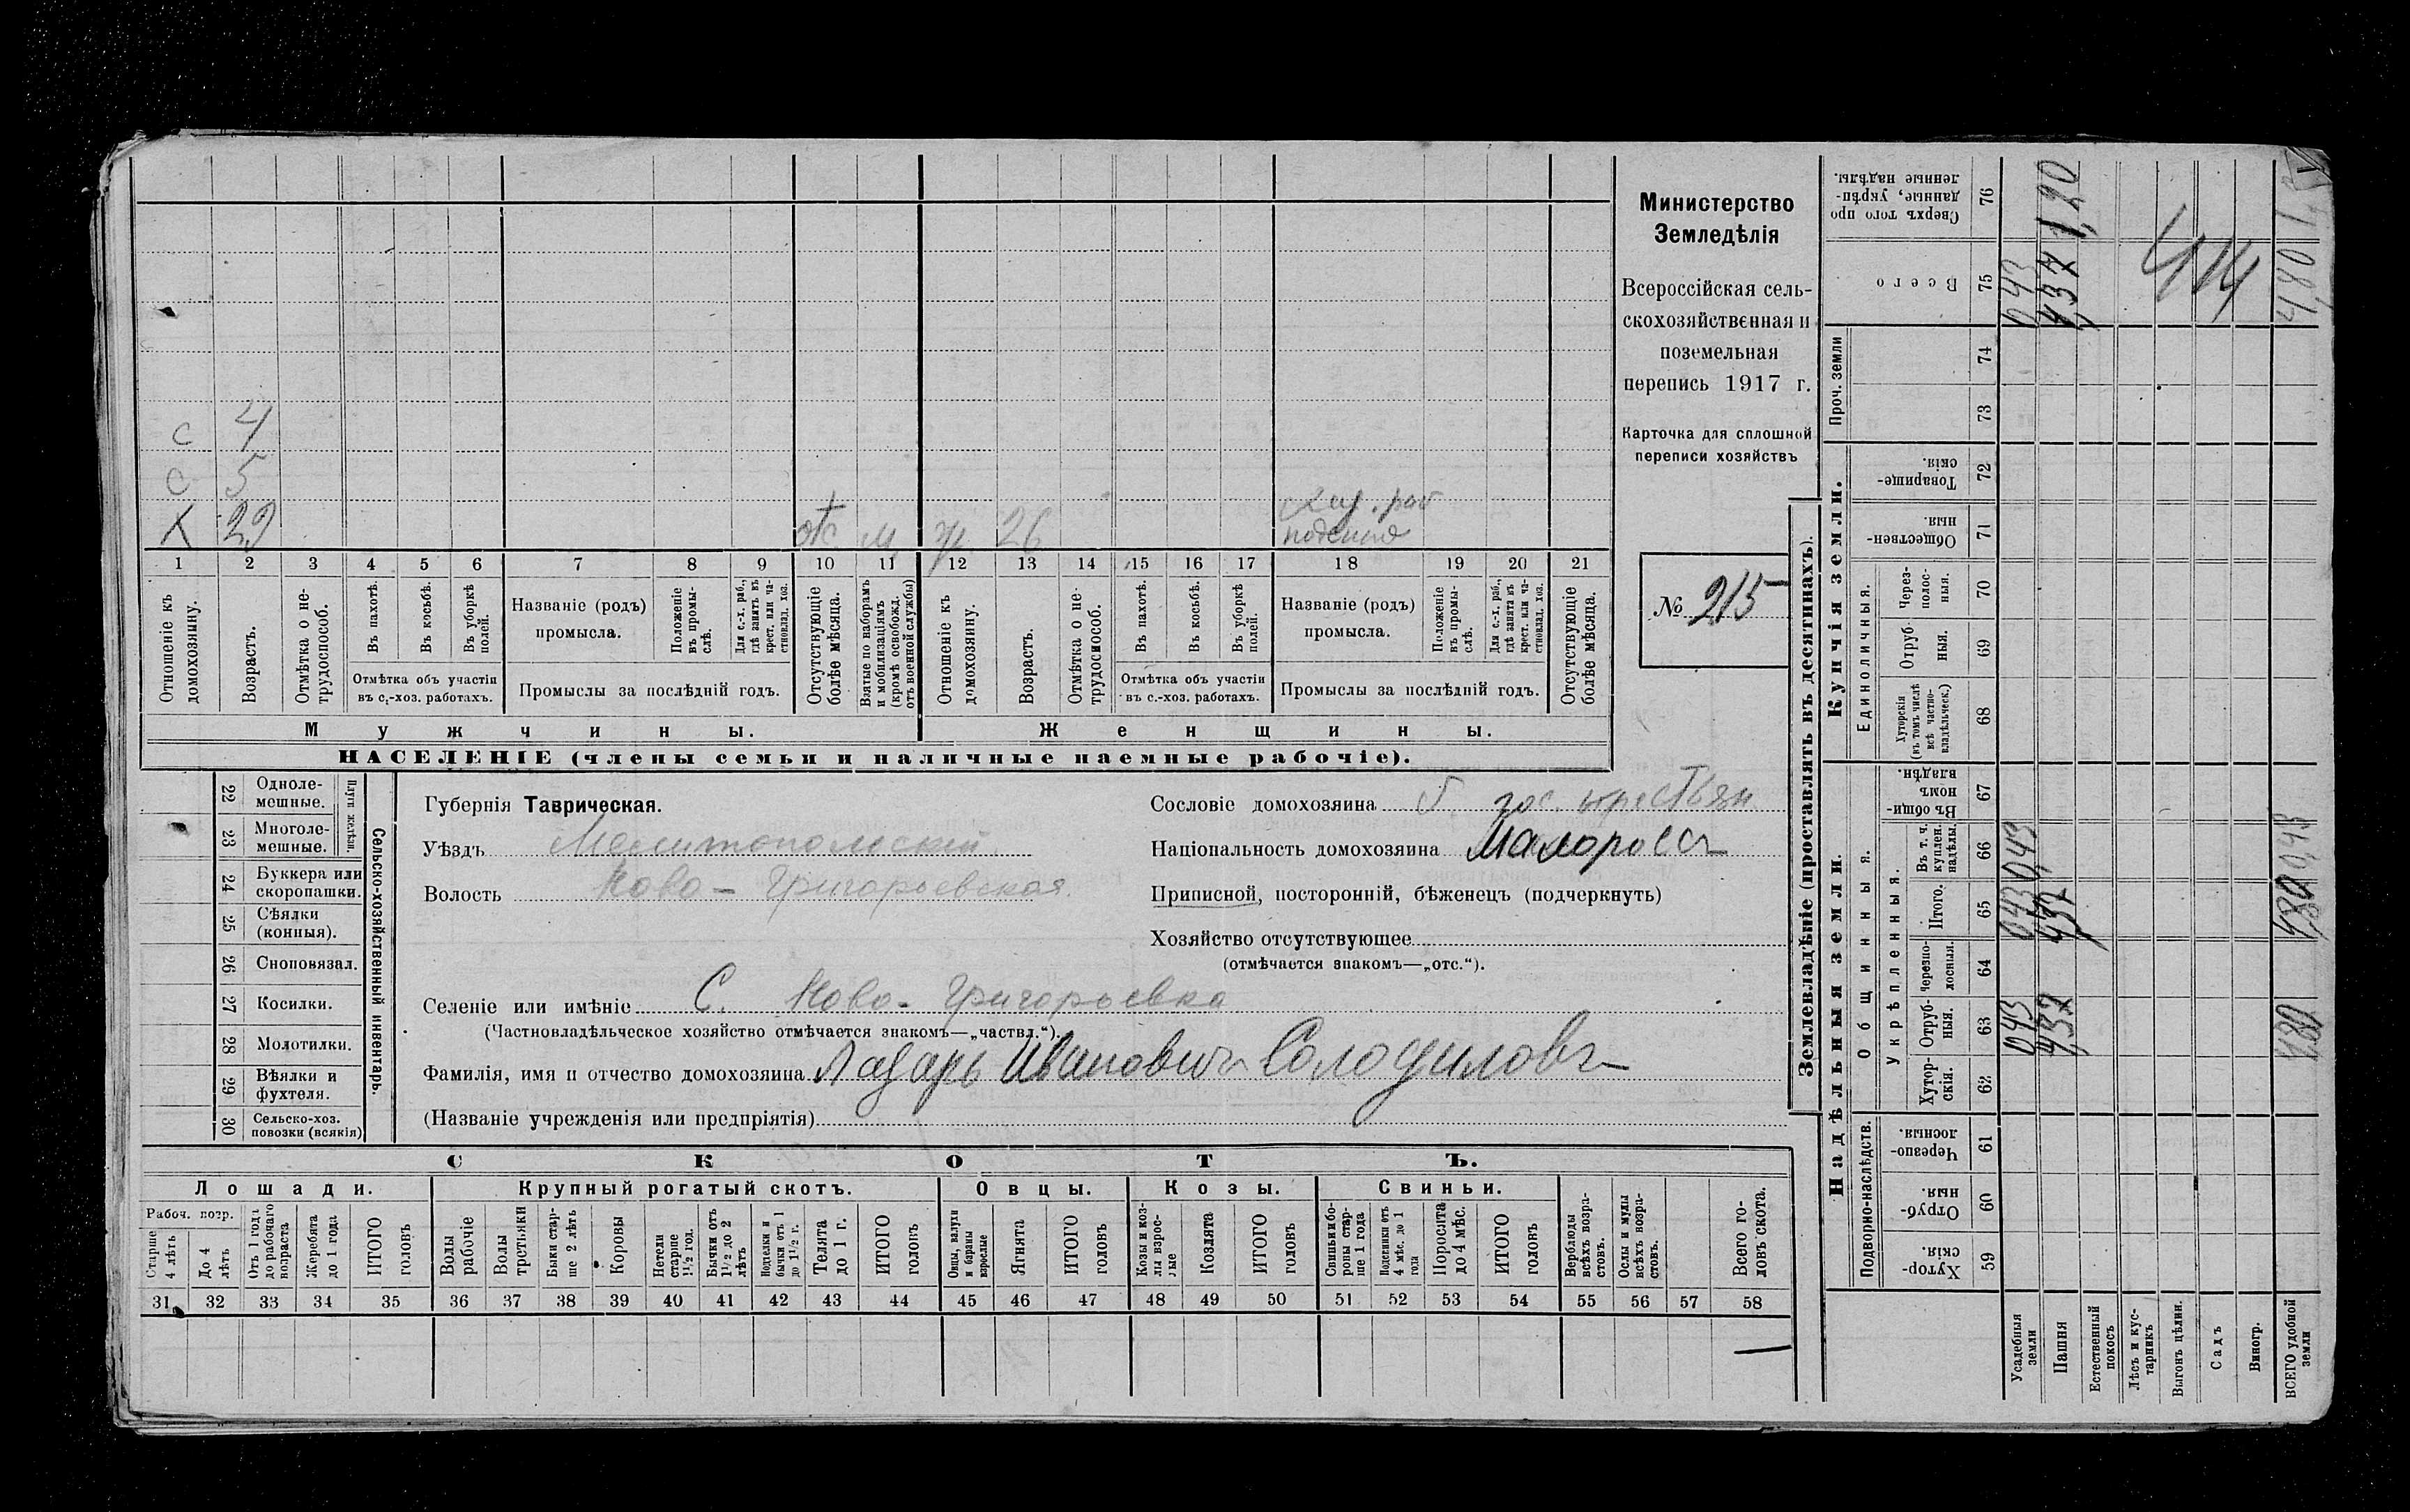 Министерство
Земледѣлія
Всероссійская сель-
скохозяйственная и
поземельная
перепись 1917 г.
Карточка для сплошной
переписи хозяйствъ
№ 215
с 4
с 5
х 29 отс м ж 26 поденно
1 2 3 4 5 6 7 8 9 10 11 12 13 14 15 16 17 18 19 20 21
Отношеніе къ домохозяину.
Возрастъ.
Отмѣтка о не-трудоспособ.
Въ пахотѣ.
Въ косьбѣ.
Въ уборкѣ полей.
Отмѣтка объ участіи въ с.-хоз. работахъ.
Названіе (родъ) промысла.
Положеніе въ промы-слѣ.
Для с.-х. раб., гдѣ занятъ въ крест. или ча-стновлад. хоз.
Промыслы за послѣдній годъ.
Отсутствующіе болѣе мѣсяца.
Взятые по наборамъ и мобилизаціямъ (кромѣ освобожд. отъ военной службы)
Отношеніе къ домохозяину.
Возрастъ.
Отмѣтка о не-трудоспособ.
Въ пахотѣ.
Въ косьбѣ.
Въ уборкѣ полей.
Отмѣтка объ участіи въ с.-хоз. работахъ.
Названіе (родъ) промысла.
Положеніе въ промы-слѣ.
Для с.-х. раб., гдѣ занята въ крест. или ча-стновлад. хоз.
Промыслы за послѣдній годъ.
Отсутствующіе болѣе мѣсяца.
Мужчины. Женщины.
НАСЕЛЕНІЕ (члены семьи и наличные наемные рабочіе).
22 Одноле-мешные.
23 Многоле-мешные.
Плуги желѣзн.
24 Буккера или скоропашки.
25 Сѣялки (конныя).
26 Сноповязал.
27 Косилки.
28 Молотилки.
29 Вѣялки и фухтеля.
30 Сельско-хоз. повозки (всякія)
Сельско-хозяйственный инвентарь.
Губернія Таврическая.
Уѣздъ Мелитопольскій
Волость Ново-Григорьевская
Селеніе или имѣніе С. Ново-Григорьевка
(Частновладѣльческое хозяйство отмѣчается знакомъ—„частвл.“).
Фамилія, имя и отчество домохозяина Лазарь Ивановичъ Солодиловъ
(Названіе учрежденія или предпріятія)
Сословіе домохозяина б. гос. крестьян
Національность домохозяина Малороссъ
Приписной, посторонній, бѣженецъ (подчеркнуть)
Хозяйство отсутствующее
(отмѣчается знакомъ—„отс.“).
СКОТЪ.
Лошади. Крупный рогатый скотъ. Овцы. Козы. Свиньи.
Рабоч. возр.
Старше 4 лѣтъ
До 4 лѣтъ
Отъ 1 года до рабочаго возраста
Жеребята до 1 года
ИТОГО головъ
Волы рабочіе
Волы третьяки
Быки стар-ше 2 лѣтъ
Коровы
Нетели старше 1½ год.
Бычки отъ 1½ до 2 лѣтъ
Подтелки и бычки отъ 1 до 1½ г.
Телята до 1 г.
ИТОГО головъ
Овцы, валухи и бараны взрослые
Ягнята
ИТОГО головъ
Козы и коз-лы взрос-лые
Козлята
ИТОГО головъ
Свиньи и бо-ровы стар-ше 1 года
Подсвинки отъ 4 мѣс. до 1 года
Поросята до 4 мѣс.
ИТОГО головъ
Верблюды всѣхъ возра-стовъ.
Ослы и мулы всѣхъ возра-стовъ.
Всего го-ловъ скота.
31 32 33 34 35 36 37 38 39 40 41 42 43 44 45 46 47 48 49 50 51 52 53 54 55 56 57 58
—
Землевладѣніе (проставлять въ десятинахъ).
Надѣльныя земли.
Подворно-наслѣдств.
Хутор-скія. 59
Отруб-ныя. 60
Черезпо-лосныя. 61
Общинныя.
Укрѣпленныя.
Хутор-скія. 62
Отруб-ныя. 63
Черезпо-лосныя. 64
Итого. 65
Въ т. ч. куплен. надѣлы. 66
Въ общи-номъ владѣн. 67
Купчія земли.
Единоличныя.
Хуторскія (въ томъ числѣ всѣ частно-владѣльческ.) 68
Отруб-ныя. 69
Через-полос-ныя. 70
Обществен-ныя. 71
Товарище-скія. 72
Проч. земли
73
74
Всего 75
Сверхъ того про-данные, укрѣп-ленные надѣлы. 76
Усадебныя земли 043 043 043 043
Пашня 4,37 4,37 4,37 1,20
Естественный покосъ
Лѣсъ и кус-тарникъ
Выгонъ цѣлин.
Садъ
Виногр.
ВСЕГО удобной земли 480 480 0,43 4,80
414